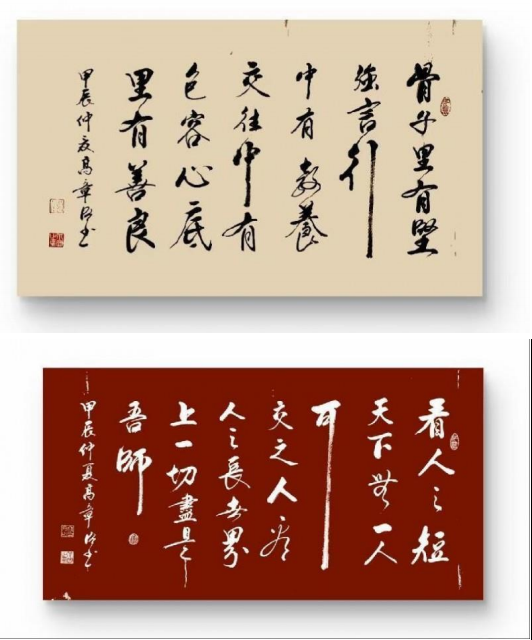 骨子里有坚
强言行
中有教養
交往中有
包容心底
里有善良
甲辰仲夏高章
看人之短
天下無一人
可
交之人看
人之長世界
上一切盡是
吾師
甲辰仲夏高章